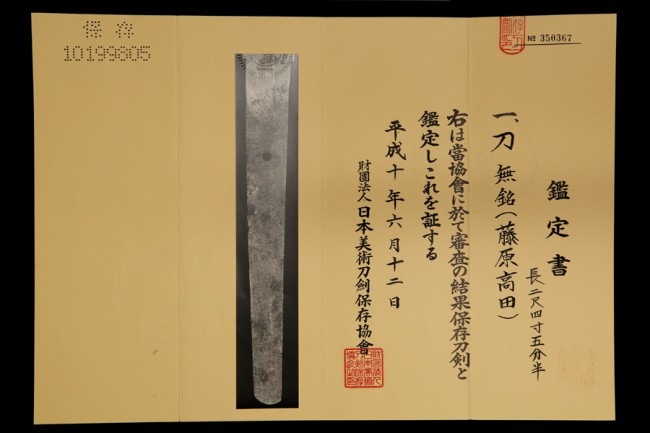 保存
10199805
№ 350367
鑑定書
一、刀 無銘(藤原高田)
長二尺四寸五分半
右は當協會に於て審査の結果保存刀剣と
鑑定しこれを証する
平成十年六月十二日
財團法人 日本美術刀劍保存協會